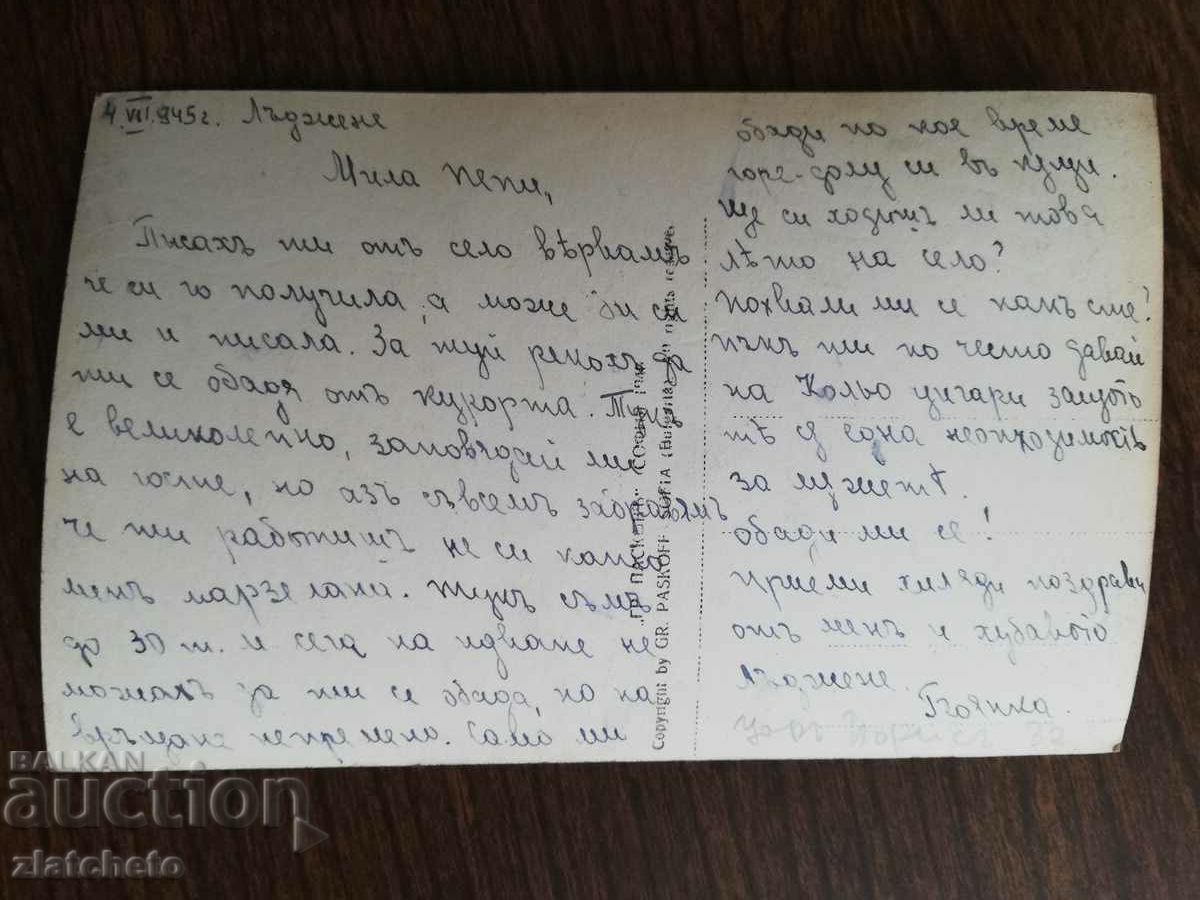 4.VII.945г. Лъджене
Мила Пепи,
Писахъ ти отъ село вѣрвамъ
че си го получила, а може би си
ми и писала. За туй рекохъ да
ти се обадя отъ курорта. Тукъ
е великолепно, заповѣдай ми
на гости, но азъ съвсемъ забравямъ
че ти работишъ не си като
менъ
съмъ
до 30 т. и сега на идване не
можахъ да ти се обадя, но на
връщане непремено. Само ми
обади по кое време
горе-долу си въ
Ще си ходишъ ли това
лѣто на село?
Похвали ми се какъ сте?
пъкъ ти по често давай
на Кольо цигари защото
тѣ сѫ една необходимость
за мѫжетѣ.
Обади ми се!
Приеми хиляди поздрави
отъ менъ и хубавото
Лъджене.
Боянка.
Царь Борисъ 32
"ГР. ПАСКОВЪ" СОФИЯ
Copyright by GR. PASKOFF SOFIA (Bulgaria)
BALKAN
auction
zlatcheto